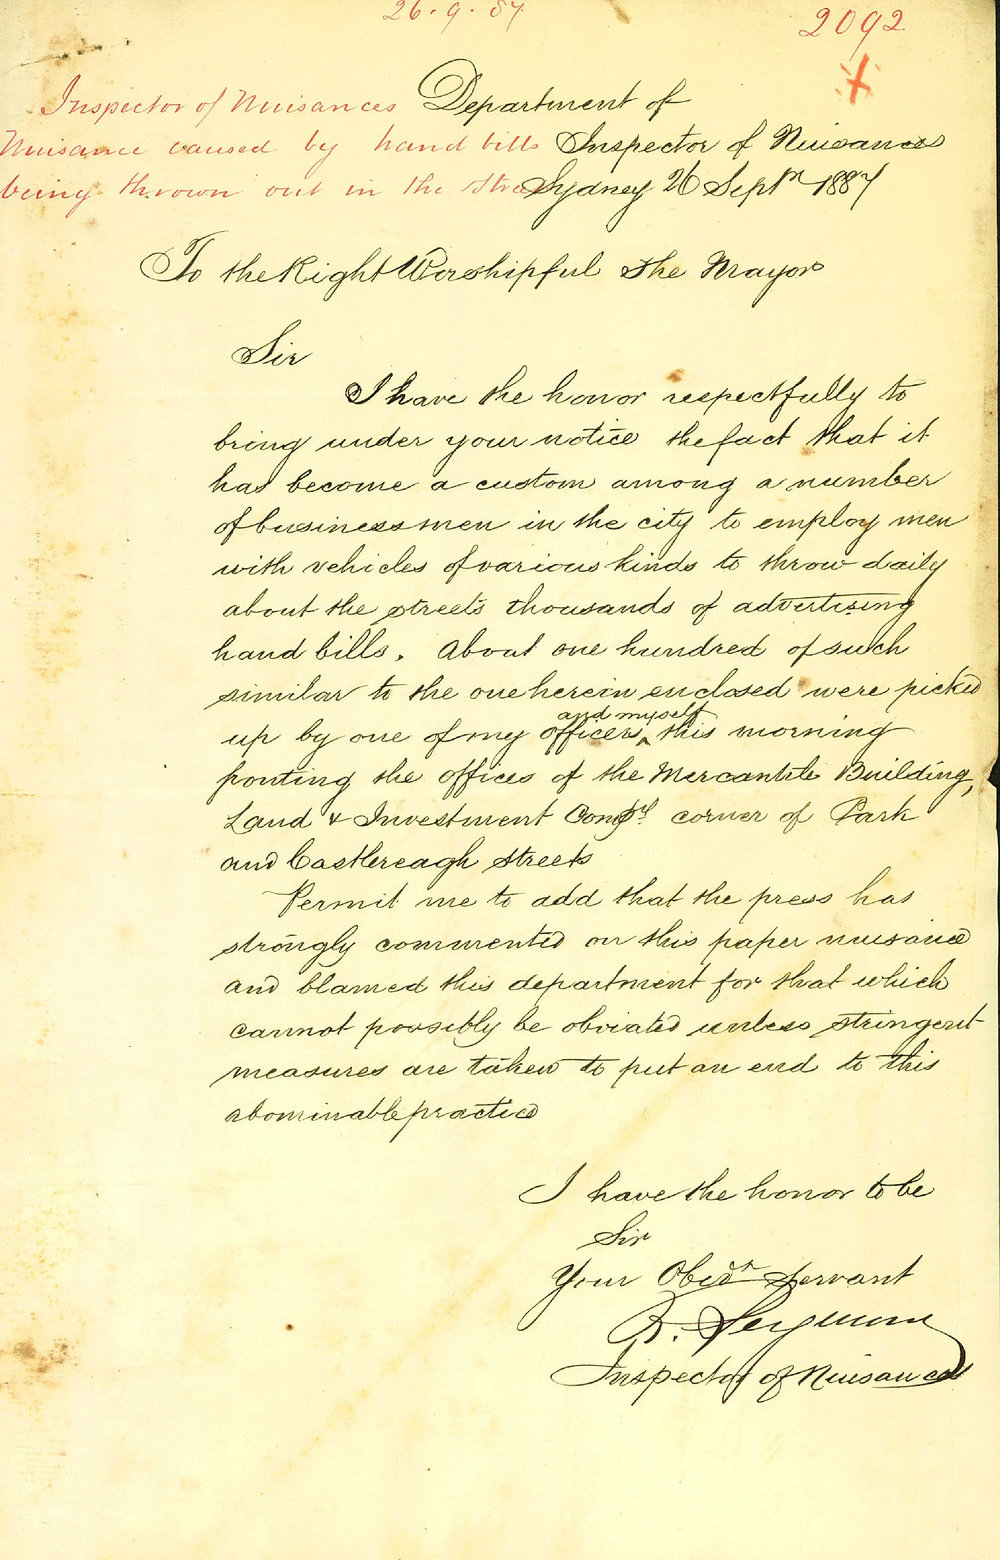 26.9.87
2092
Inspector of Nuisances
Nuisance caused by hand bills
being thrown out in the
Department of
Inspector of Nuisances
Sydney 26 Septr 1887
To the Right Worshipful The Mayor
Sir
I have the honor respectfully to
bring under your notice the fact that it
has become a custom among a number
of businessmen in the city to employ men
with vehicles of various kinds to throw daily
about the streets thousands of advertising
hand bills. About one hundred of such
similar to the one herein enclosed were picked
up by one of my officers and myself this morning
fronting the offices of the Mercantile Building,
Land & Investment Compy. corner of Park
and Castlereagh streets
Permit me to add that the press has
strongly commented on this paper nuisance
and blamed this department for that which
cannot possibly be obviated unless stringent
measures are taken to put an end to this
abominable practice
I have the honor to be
Sir
Your Obedt Servant
R. Seymour
Inspector of Nuisances